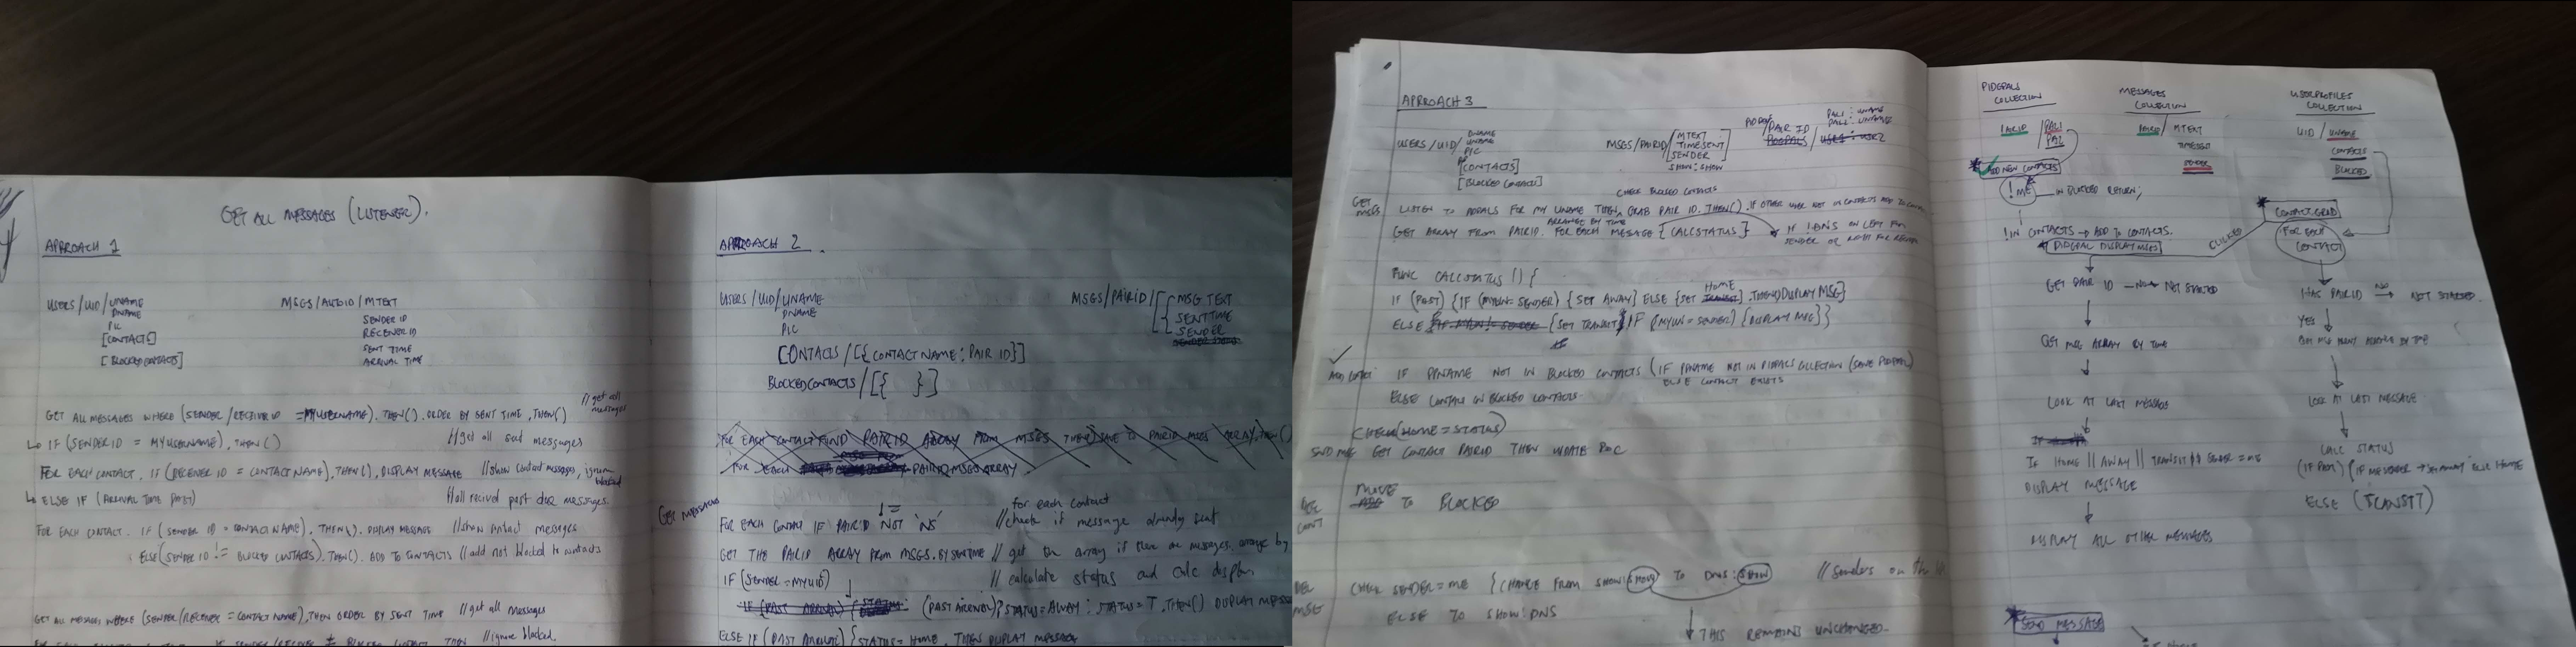 GET ALL MESSAGES (LISTENER).
APPROACH 1
USERS/UID/UNAME
DNAME
PIC
[CONTACTS]
[BLOCKED CONTACTS]
MSGS/AUTOID/MTEXT
SENDER ID
RECEVER ID
SENT TIME
ARRIVAL TIME
GET ALL MESSAGES WHERE (SENDER/RECEIVER ID = MYUSERNAME).THEN().ORDER BY SENT TIME,THEN() //get all messages
IF (SENDERID = MYUSERNAME),THEN() //get all sent messages
FOR EACH CONTACT, IF (RECEVER ID = CONTACT NAME),THEN(),DISPLAY MESSAGE //show contact messages, ignore blocked
ELSE IF (ARRIVAL TIME PAST) //all recived past due messages.
FOR EACH CONTACT. IF (SENDER ID = CONTACT NAME), THEN(). DISPLAY MESSAGE //show contact messages
ELSE (SENDER ID != BLOCKED CONTACTS).THEN(). ADD TO CONTACTS //add not blocked to contacts
GET ALL MESSAGES WHERE (SENDER/RECEVER = CONTACT NAME),THEN ORDER BY SENT TIME //get all messages
//ignore blocked
APPROACH 2
USERS/UID/UNAME
DNAME
PIC
CONTACTS/[{CONTACTNAME: PAIR ID}]
BLOCKEDCONTACTS/[{ }]
MSGS/PAIRID/[{MSG TEXT
SENTTIME
SENDER
FOR EACH CONTACT FIND PAIRID ARRAY FROM MSGS THEN SAVE TO PAIRID MSGS ARRAY,THEN()
FOR EACH PAIRIDMSGSARRAY
GET MESSAGES
FOR EACH CONTACT IF PAIRID != NOT 'NS' //for each contact check if message already sent
GET THE PAIRID ARRAY FROM MSGS.BYSENTTIME // get the array if there are messages. arrange by
IF (SENDER=MYUID) // calculate status and calc display.
(PAST ARRIVAL)? STATUS=AWAY : STATUS=T.THEN() DISPLAY MESSAGE
ELSE IF (PAST ARRIVAL) {STATUS= HOME, THEN DISPLAY MESSAGE
APPROACH 3
USERS/UID/
DNAME
UNAME
PIC
[CONTACTS]
[BLOCKED CONTACTS]
MSGS/PAIRID/[MTEXT
TIMESENT
SENDER]
SHOW:SHOW
PAIR ID
PAL1: UNAME
PAL2: UNAME
CHECK BLOCKED CONTACTS
GET MSGS
LISTEN TO PIDPALS FOR MY UNAME THEN, GRAB PAIR ID. THEN(). IF OTHER USER NOT IN CONTACTS ADD TO
ARRANGE BY TIME
GET ARRAY FROM PAIRID. FOR EACH MESSAGE {CALCSTATUS}
IF !DNS ON LEFT FOR
SENDER OR RIGHT FOR
FUNC CALCSTATUS () {
IF (PAST) {IF (MYUN=SENDER) {SET AWAY} ELSE {SET HOME}.THEN()DISPLAY MSG}
ELSE {SET TRANSIT} IF (MYUN=SENDER) {DISPLAY MSG}}
IF PPNAME NOT IN BLOCKED CONTACTS (IF PPNAME NOT IN PIDPALS COLLECTION (SAVE PIDPAL)
ELSE CONTACT EXISTS
ELSE CONTACT IN BLOCKED CONTACTS.
CHECK(HOME=STATUS)
SEND MSG GET CONTACT PAIRID THEN UPDATE DOC
DEL CONT
MOVE TO BLOCKED
DEL MSG
CHECK SENDER=ME {CHANGE FROM SHOW:SHOW TO DNS:SHOW //Senders on the
ELSE TO SHOW:DNS
THIS REMAINS UNCHANGED.
PIDGPALS COLLECTION
PAIRID / PAL1
PAL2
ADD NEW CONTACTS
!ME IN BLOCKED RETURN;
!IN CONTACTS → ADD TO CONTACTS.
PIDGPAL DISPLAYMSGS
GET PAIR ID NO→ NOT STARTED
GET MSG ARRAY BY TIME
LOOK AT LAST MESSAGE
IF HOME || AWAY || TRANSIT && SENDER=ME
DISPLAY MESSAGE
DISPLAY ALL OTHER MESSAGES
SEND MESSAGE
MESSAGES COLLECTION
PAIRID/ MTEXT
TIMESENT
SENDER
USERPROFILES COLLECTION
UID / UNAME
CONTACTS
BLOCKED
CONTACT GRID
CLICKED
FOR EACH CONTACT
HAS PAIRID NO→ NOT STARTED.
YES
LOOK AT LAST MESSAGE.
CALC STATUS
(IF PAST) {IF ME SENDER → SET AWAY ELSE HOME
ELSE (TRANSIT)